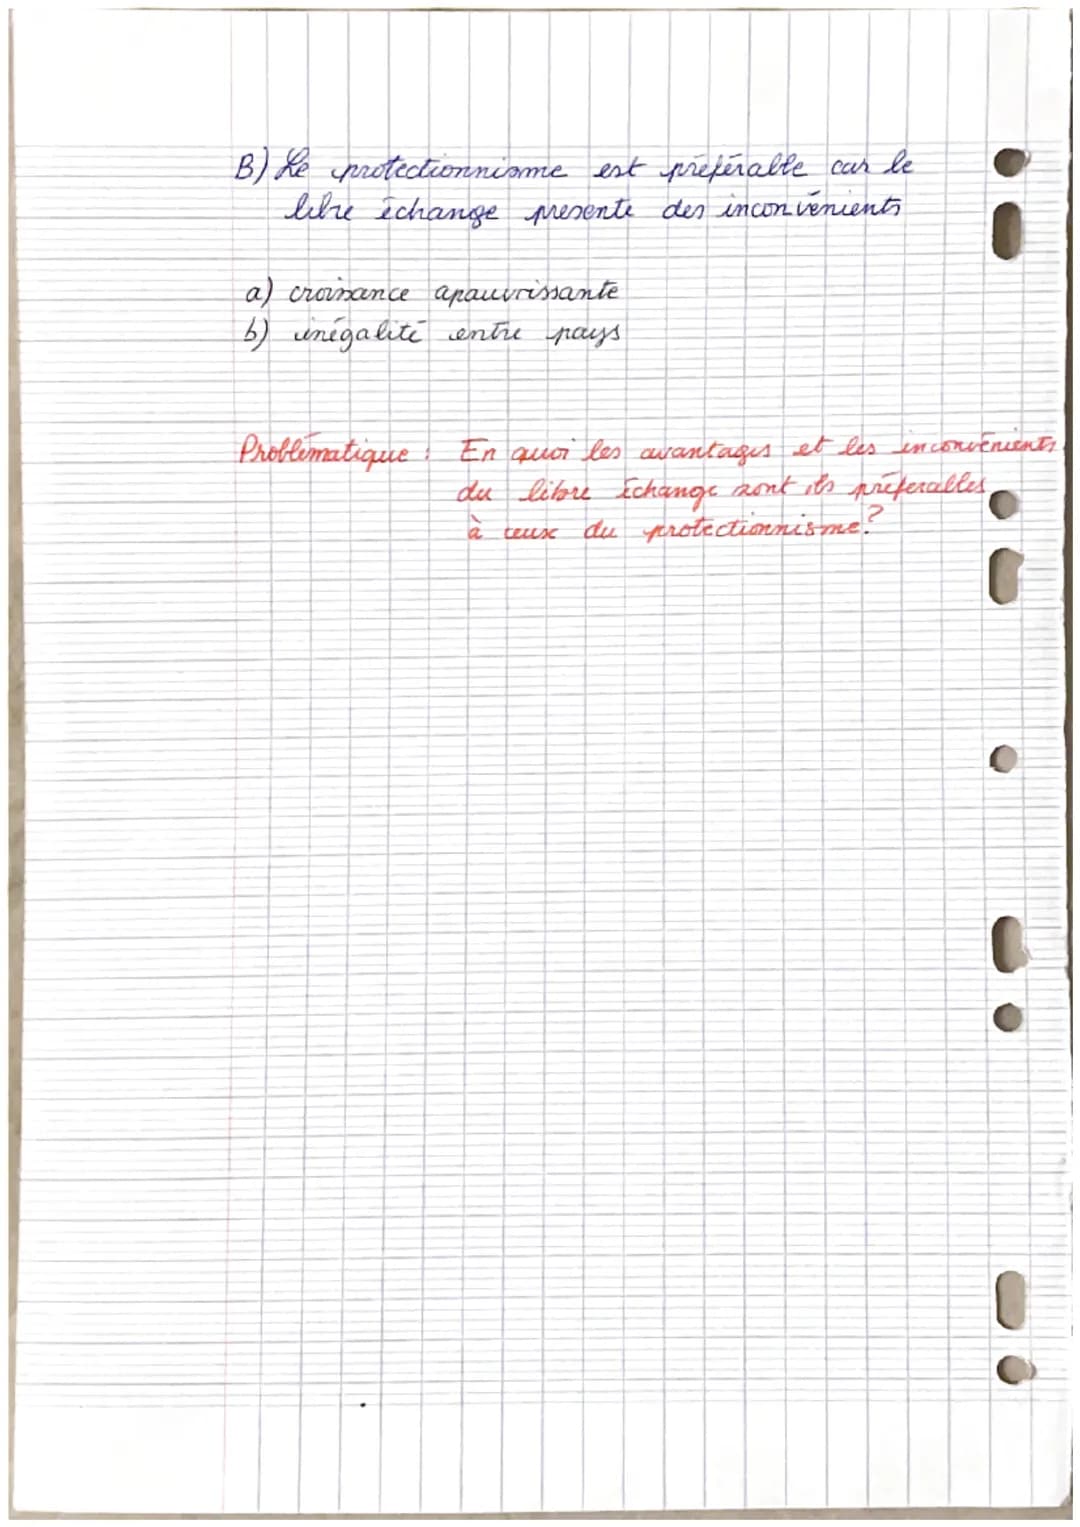 B) Le protectionnisme est préférable car le
libre échange presente des inconvénients
a) croissance apauvrissante
b) inégalité entre pays
Problématique : En quoi les avantages et les inconvénients
du libre échange sont ils préferables
à ceux du protectionnisme ?